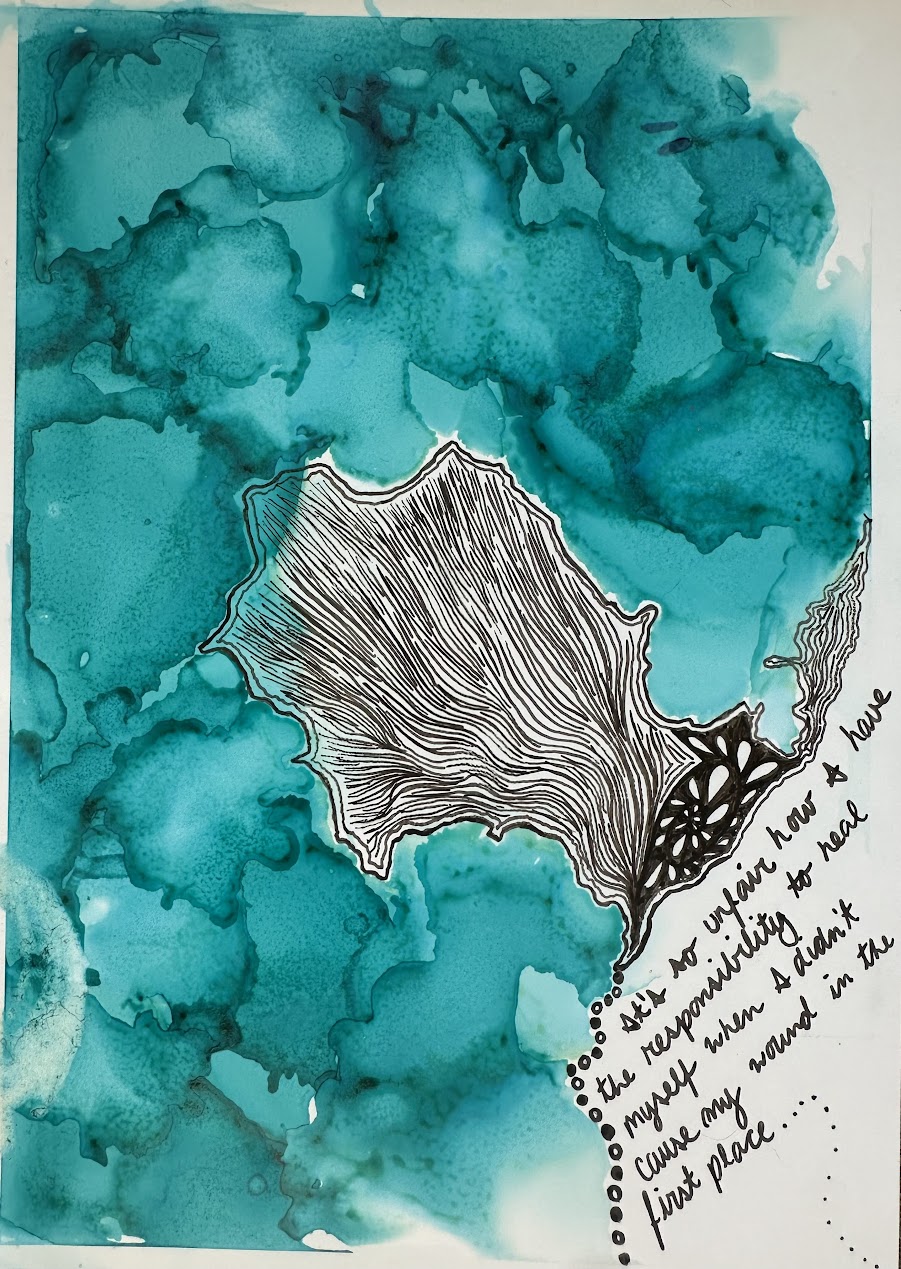 It's so unfair how I have
the responsibility to heal
myself when I didn't
cause my wound in the
first place....